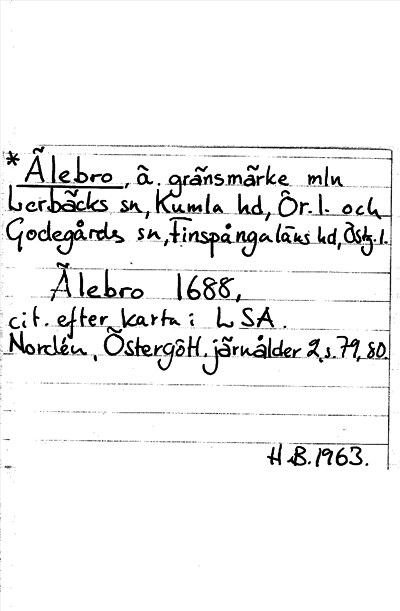 *Älebro, ä. gränsmärke mln
Lerbäcks sn, Kumla hd, Ör. l. och
Godegårds sn, Finspångaläns hd, Östg. l.
Älebro 1688,
cit. efter karta i LSA.
Nordén, Östergötl. järnålder 2, s. 79, 80
H.B. 1963.